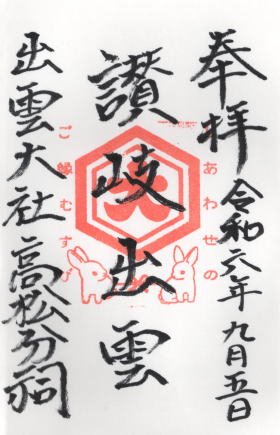 奉拝 令和六年九月五日
讃岐出雲
出雲大社高松分祠
あわせの
ご縁むすび